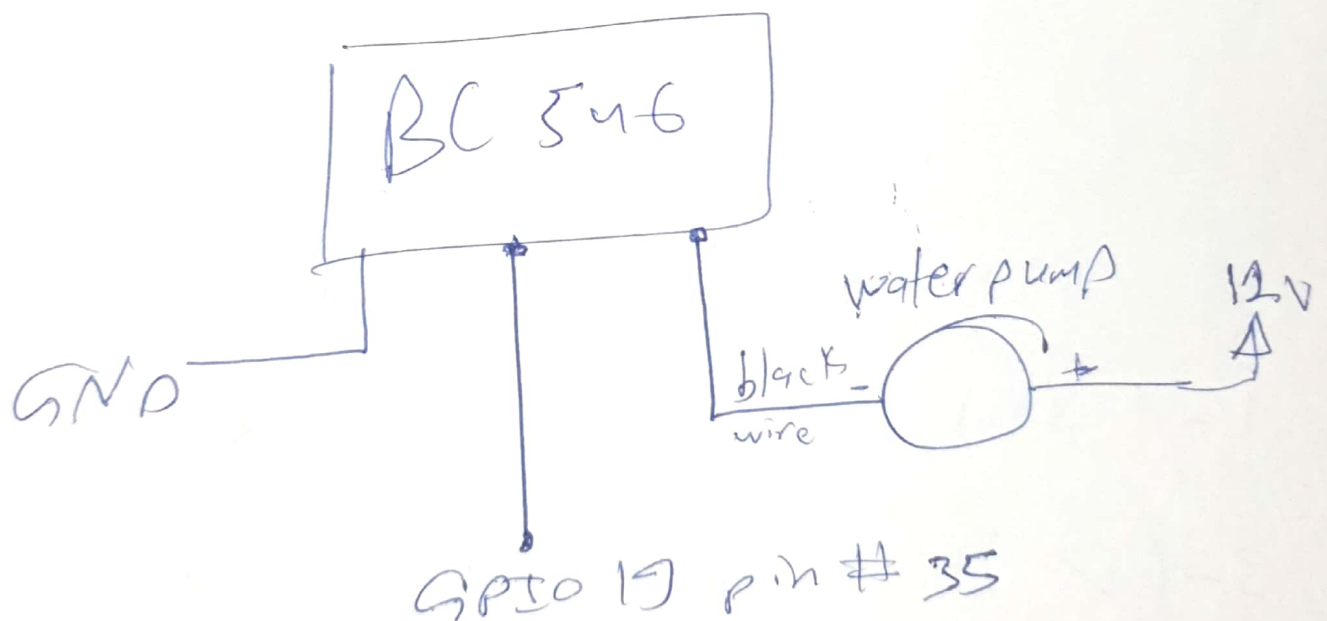 BC 546
water pump
12V
black -
+
wire
GND
GPIO 19 pin # 35